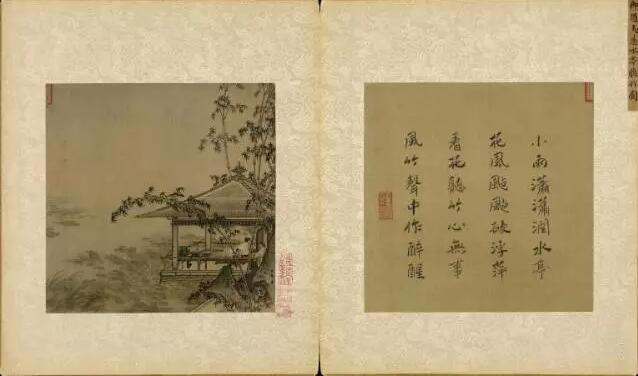 小雨瀟瀟潤水亭
花風颭颭破浮萍
看花聽竹心無事
風竹聲中作醉醒